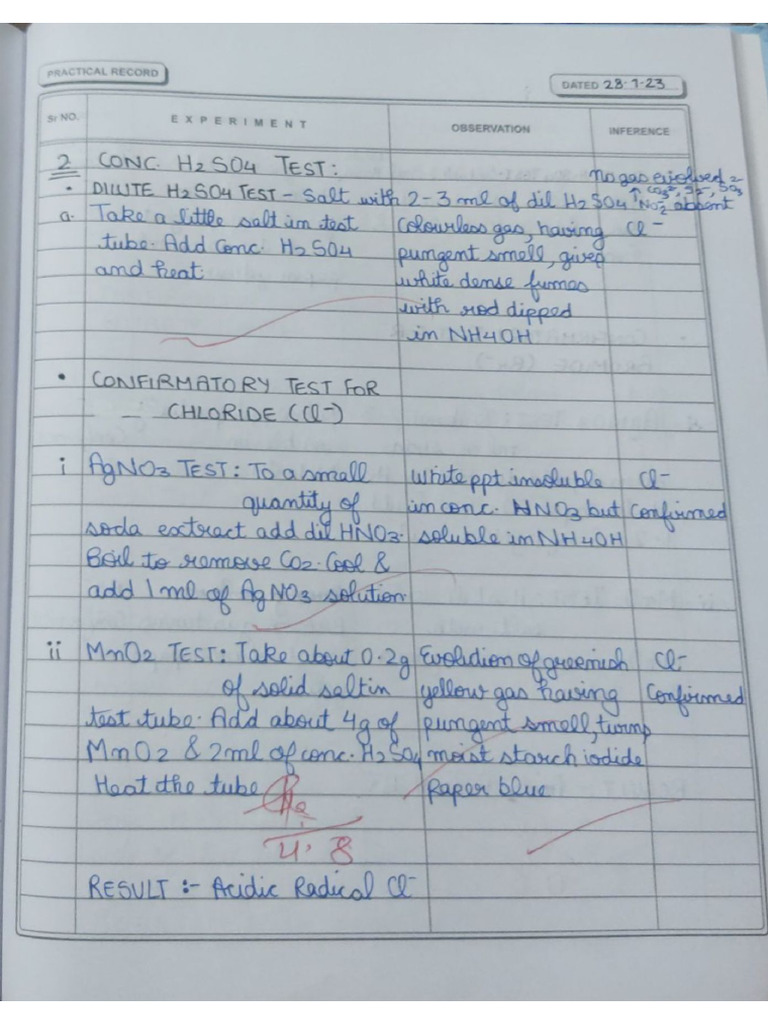 PRACTICAL RECORD
DATED 28.7.23
Sr NO. EXPERIMENT OBSERVATION INFERENCE
2 CONC. H2SO4 TEST: no gas evolved =
• DILUTE H2SO4 TEST - Salt with 2-3 ml of dil H2SO4 ↑ CO3²⁻, S²⁻, SO3 NO2⁻ absent
a. Take a little salt in test Colourless gas, having Cl⁻
tube. Add Conc. H2SO4 pungent smell, gives
and heat. white dense fumes
with rod dipped
in NH4OH
• CONFIRMATORY TEST FOR
CHLORIDE (Cl⁻)
i AgNO3 TEST: To a small White ppt insoluble Cl⁻
quantity of in conc. HNO3 but Confirmed
soda extract add dil HNO3. soluble in NH4OH
Boil to remove CO2. Cool &
add 1 ml of AgNO3 solution
ii MnO2 TEST: Take about 0.2g Evolution of greenish Cl⁻
of solid salt in yellow gas having Confirmed
test tube. Add about 4g of pungent smell, turns
MnO2 & 2ml of conc. H2SO4 moist starch iodide
Heat the tube paper blue
4.8
RESULT :- Acidic Radical Cl⁻